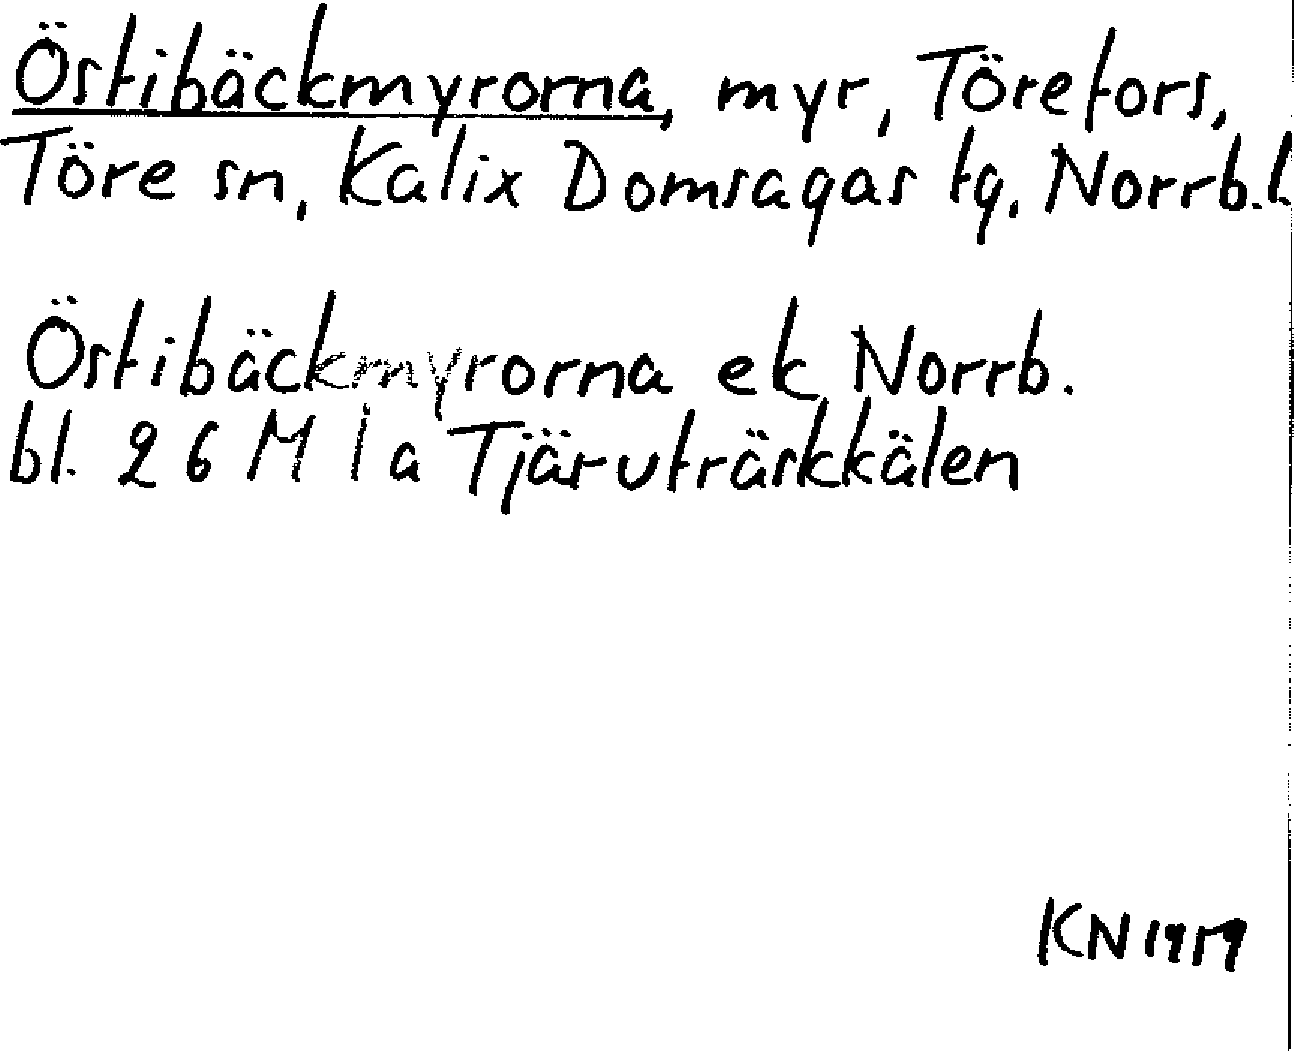 Östibäckmyrorna, myr, Törefors,
Töre sn, Kalix Domsagas tg, Norrb.l.
Östibäckmyrorna ek Norrb.
bl. 26 M 1 a Tjäruträskkälen
KN 1959